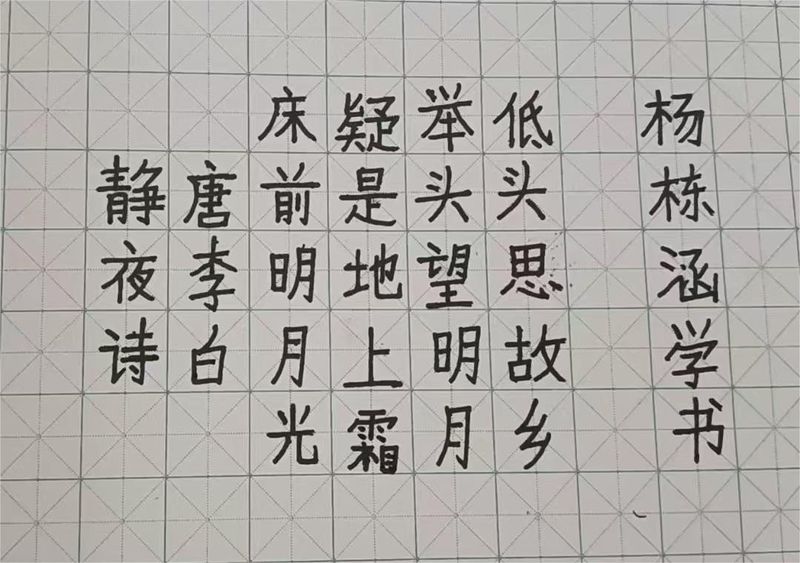 静夜诗
唐李白
床前明月光
疑是地上霜
举头望明月
低头思故乡
杨栋涵学书